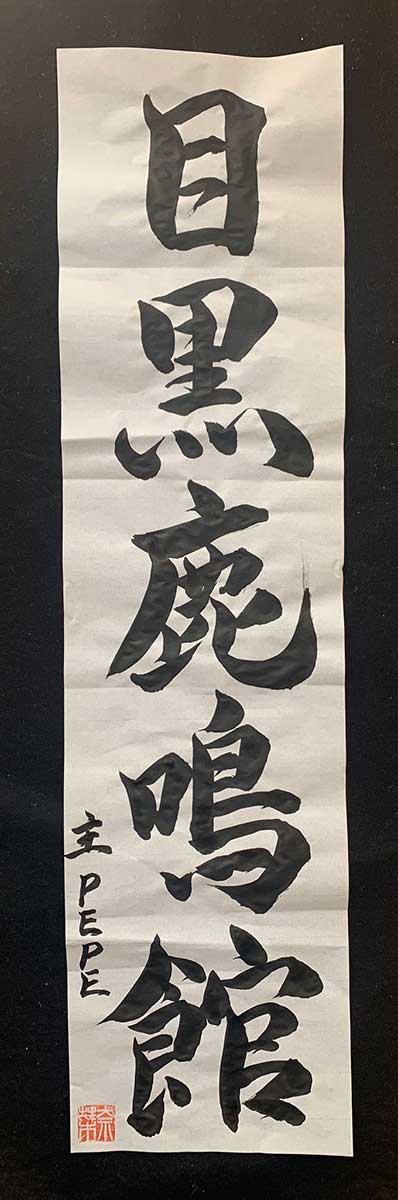 目黒鹿鳴館
主 PEPE